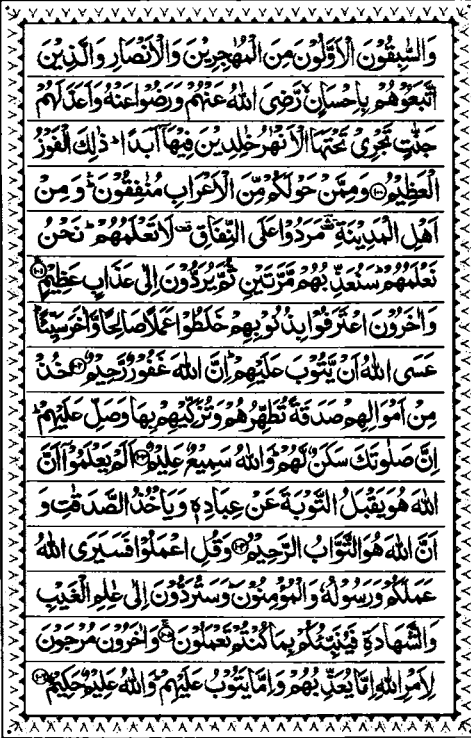 وَالسّٰبِقُوْنَ الْاَوَّلُوْنَ مِنَ الْمُهٰجِرِيْنَ وَالْاَنْصَارِ وَالَّذِيْنَ
اتَّبَعُوْهُمْ بِاِحْسَانٍ رَّضِىَ اللّٰهُ عَنْهُمْ وَرَضُوْا عَنْهُ وَاَعَدَّ لَهُمْ
جَنّٰتٍ تَجْرِىْ تَحْتَهَا الْاَنْهٰرُ خٰلِدِيْنَ فِيْهَاۤ اَبَدًا ؕ ذٰلِكَ الْفَوْزُ
الْعَظِيْمُ ﴿۱۰۰﴾ وَمِمَّنْ حَوْلَكُمْ مِّنَ الْاَعْرَابِ مُنٰفِقُوْنَ ؕ وَمِنْ
اَهْلِ الْمَدِيْنَةِ ؔ مَرَدُوْا عَلَى النِّفَاقِ ࣞ لَا تَعْلَمُهُمْ ؕ نَحْنُ
نَعْلَمُهُمْ ؕ سَنُعَذِّبُهُمْ مَّرَّتَيْنِ ثُمَّ يُرَدُّوْنَ اِلٰى عَذَابٍ عَظِيْمٍ ﴿۱۰۱﴾
وَاٰخَرُوْنَ اعْتَرَفُوْا بِذُنُوْبِهِمْ خَلَطُوْا عَمَلًا صَالِحًا وَّاٰخَرَ سَيِّئًا ؕ
عَسَى اللّٰهُ اَنْ يَّتُوْبَ عَلَيْهِمْ ؕ اِنَّ اللّٰهَ غَفُوْرٌ رَّحِيْمٌ ﴿۱۰۲﴾ خُذْ
مِنْ اَمْوَالِهِمْ صَدَقَةً تُطَهِّرُهُمْ وَتُزَكِّيْهِمْ بِهَا وَصَلِّ عَلَيْهِمْ ؕ
اِنَّ صَلٰوتَكَ سَكَنٌ لَّهُمْ ؕ وَاللّٰهُ سَمِيْعٌ عَلِيْمٌ ﴿۱۰۳﴾ اَلَمْ يَعْلَمُوْۤا اَنَّ
اللّٰهَ هُوَ يَقْبَلُ التَّوْبَةَ عَنْ عِبَادِهٖ وَيَاْخُذُ الصَّدَقٰتِ وَ
اَنَّ اللّٰهَ هُوَ التَّوَّابُ الرَّحِيْمُ ﴿۱۰۴﴾ وَقُلِ اعْمَلُوْا فَسَيَرَى اللّٰهُ
عَمَلَكُمْ وَرَسُوْلُهٗ وَالْمُؤْمِنُوْنَ ؕ وَسَتُرَدُّوْنَ اِلٰى عٰلِمِ الْغَيْبِ
وَالشَّهَادَةِ فَيُنَبِّئُكُمْ بِمَا كُنْتُمْ تَعْمَلُوْنَ ﴿۱۰۵﴾ وَاٰخَرُوْنَ مُرْجَوْنَ
لِاَمْرِ اللّٰهِ اِمَّا يُعَذِّبُهُمْ وَاِمَّا يَتُوْبُ عَلَيْهِمْ ؕ وَاللّٰهُ عَلِيْمٌ حَكِيْمٌ ﴿۱۰۶﴾